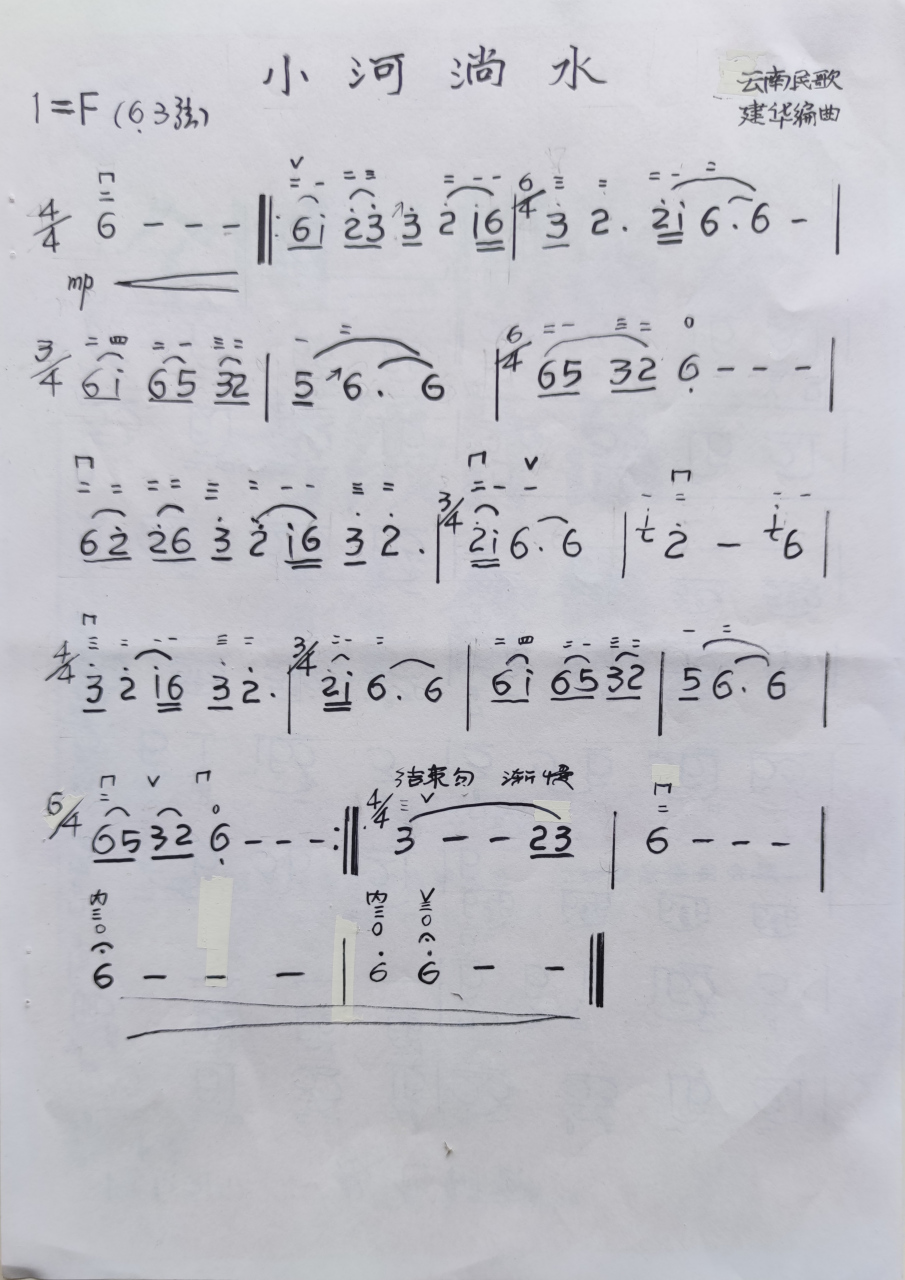 小河淌水
云南民歌
1=F (6̣ 3弦)
建华编曲
4/4 6 - - - ‖: 6i 2̇3̇ 3̇ 2̇ i6 | 6/4 3̇ 2̇. 2̇i 6.6 - |
mp
3/4 6i 65 32 | 5 6. 6 | 6/4 65 32 6̣ - - - |
62̇ 2̇6 3̇ 2̇ i6 3̇ 2̇. | 3/4 2̇i 6. 6 | 2̇ - 6 |
4/4 3̇ 2̇ i6 3̇ 2̇. | 3/4 2̇i 6. 6 | 6i 65 32 | 5 6. 6 |
结束句 渐慢
6/4 65 32 6̣ - - - :‖ 4/4 3 - - 23 | 6 - - - |
6 - - - | 6̇ 6̇ - - ‖